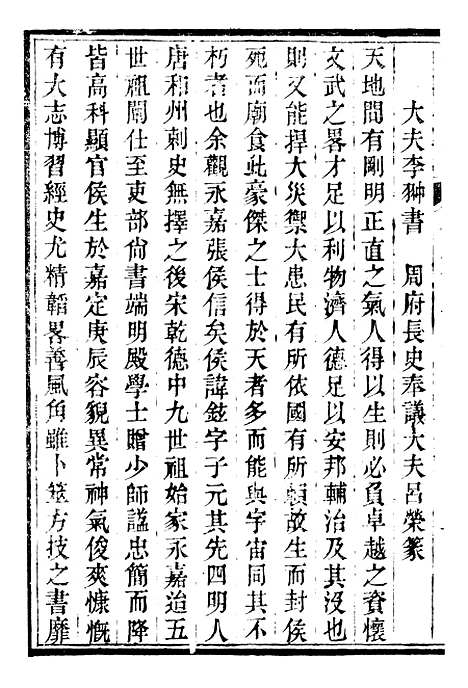 大夫李翀書　周府長史奉議大夫呂榮篆
天地間有剛明正直之氣人得以生則必負卓越之資懷
文武之畧才足以利物濟人德足以安邦輔治及其沒也
則又能捍大災禦大患民有所依國有所賴故生而封侯
死而廟食此豪傑之士得於天者多而能與宇宙同其不
朽者也余觀永嘉張侯信矣侯諱鉉字子元其先四明人
唐和州刺史無擇之後宋乾德中九世祖始家永嘉迨五
世祖闡仕至吏部尚書端明殿學士贈少師諡忠簡而降
皆高科顯官侯生於嘉定庚辰容貌異常神氣俊爽慷慨
有大志博習經史尤精韜畧善風角雖卜筮方技之書靡